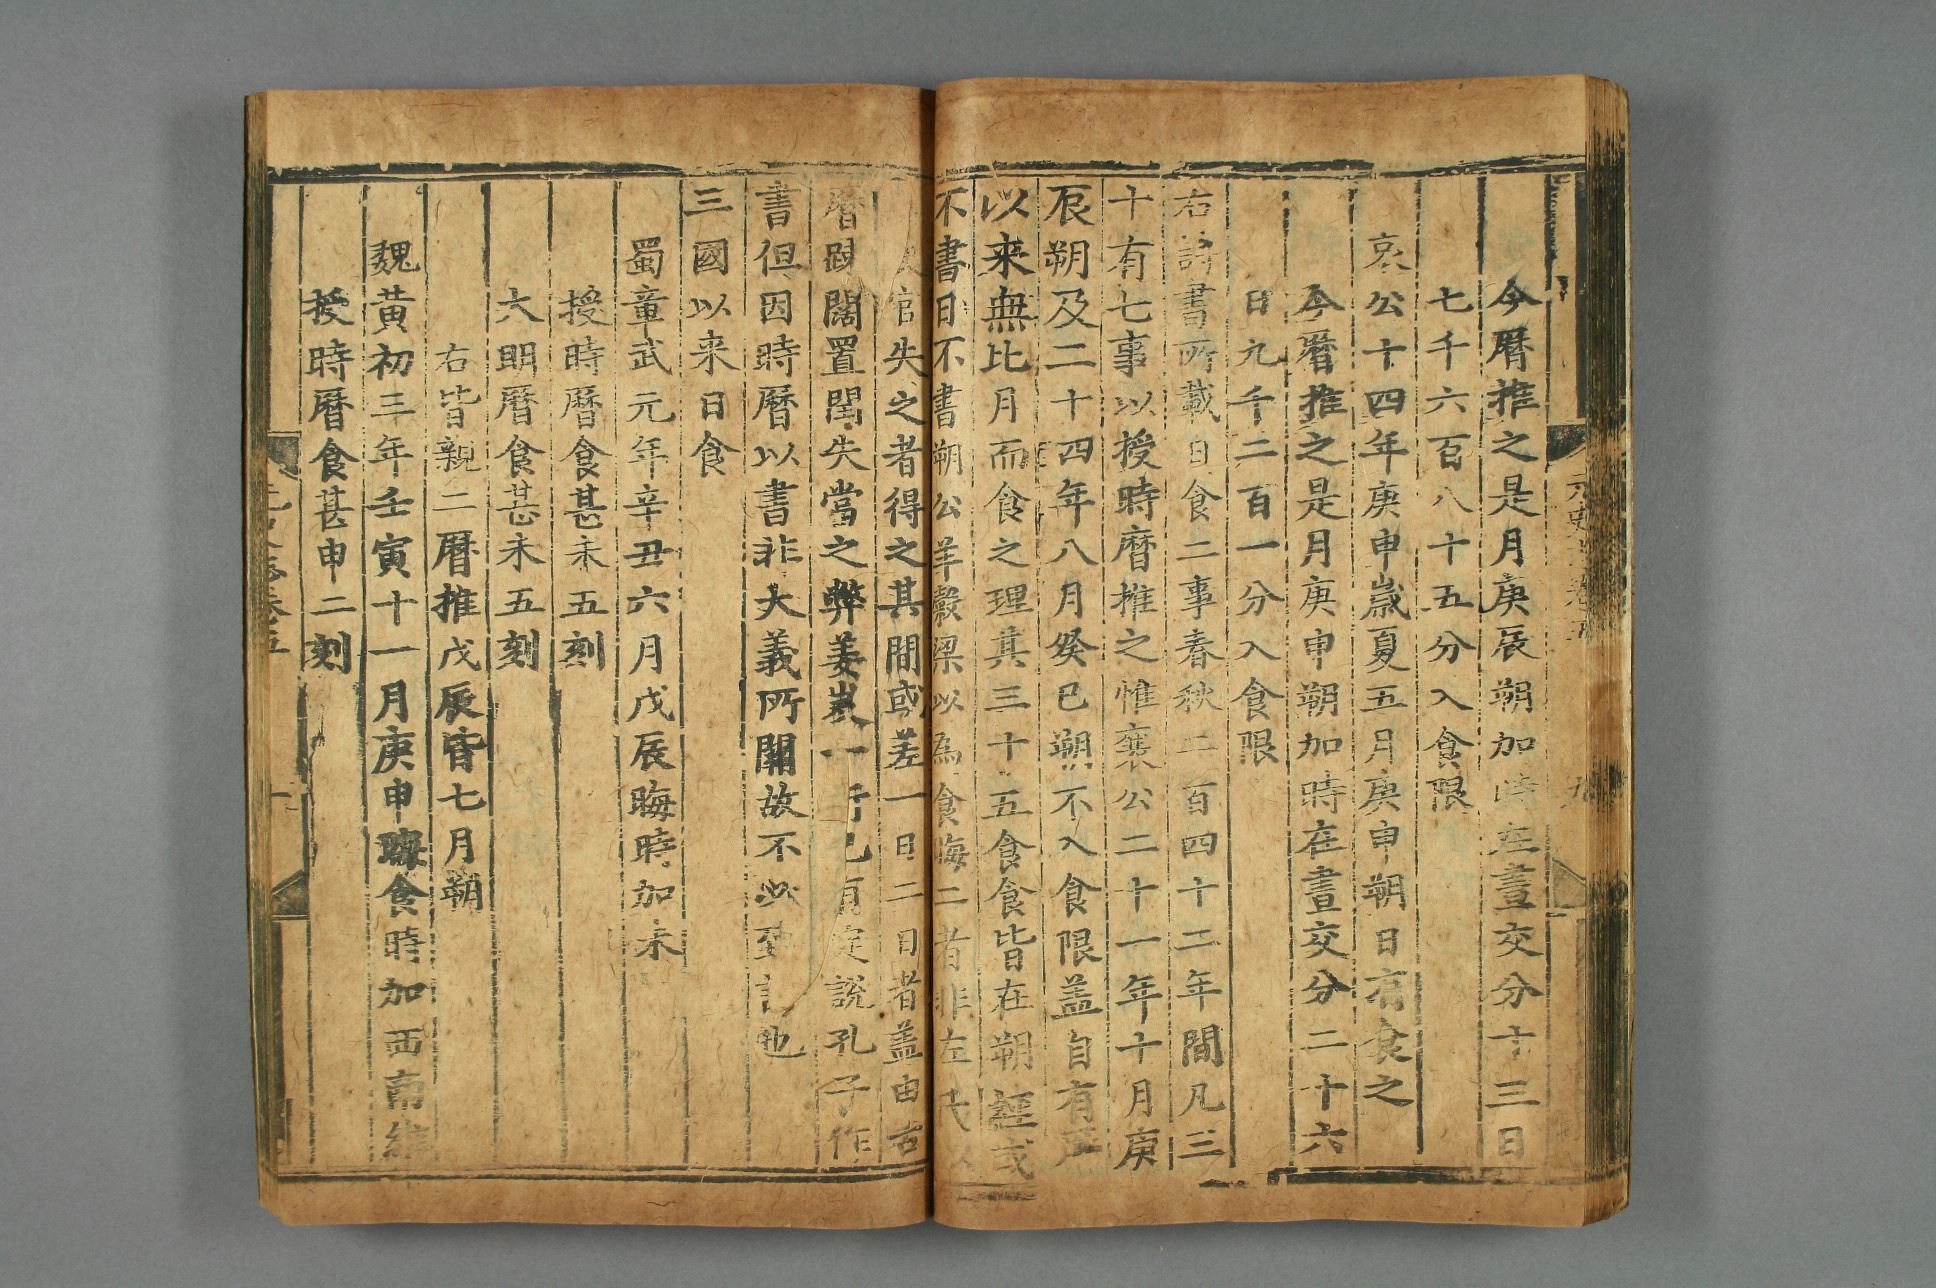 今曆推之是月庚辰朔加時在晝交分十三日
七千六百八十五分入食限
哀公十四年庚申歲夏五月庚申朔日有食之
今曆推之是月庚申朔加時在晝交分二十六
日九千二百一分入食限
右詩書所載日食二事春秋二百四十二年間凡三
十有七事以授時曆推之惟襄公二十一年十月庚
辰朔及二十四年八月癸巳朔不入食限盖自有曆
以来無比月而食之理其三十五食食皆在朔經或
不書日不書朔公羊穀梁以為食晦二者非左氏以
官失之者得之其間或差一日二日者盖由古
曆疎闊置閏失當之弊姜岌一行已有定說孔子作
書但因時曆以書非大義所關故不必致也
三國以来日食
蜀章武元年辛丑六月戊辰晦時加未
授時曆食甚未五刻
大明曆食甚未五刻
右皆親二曆推戊辰皆七月朔
魏黃初三年壬寅十一月庚申晦食時加西南維
授時曆食甚申二刻